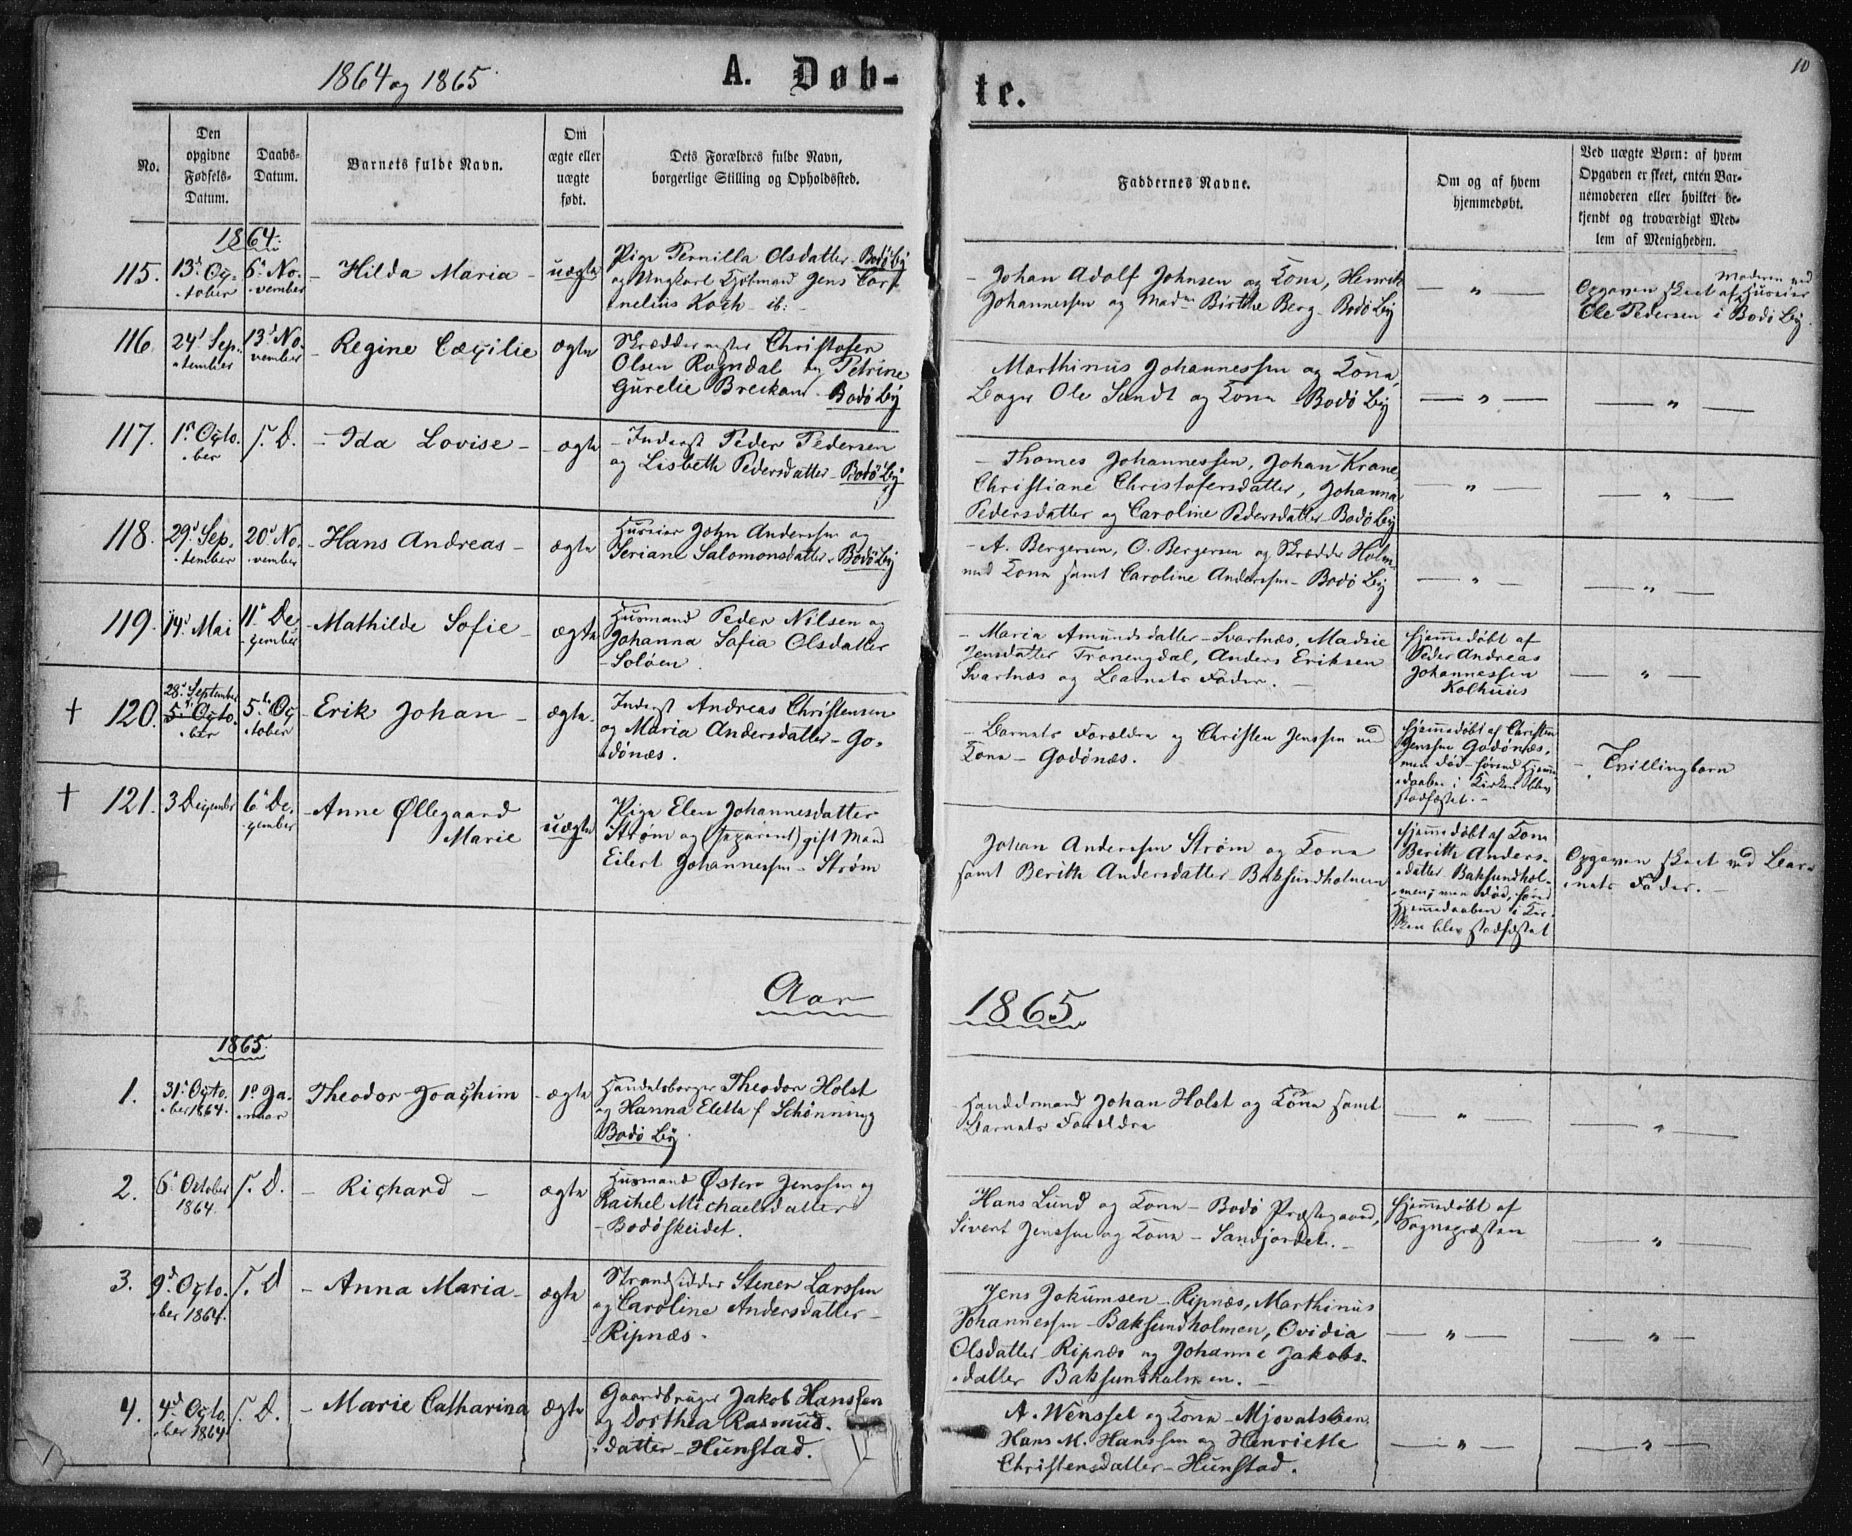 1864 og 1865
A. Døb-
te.
10
No.
Den
opgivne
Fødsels-
Datum.
Daabs-
Datum.
Barnets fulde Navn.
Om
ægte eller
uægte
født.
Dets Forældres fulde Navn,
borgerlige Stilling og Opholdssted.
Faddernes Navne.
Om og af hvem
hjemmedøbt.
Ved uægte Børn: af hvem
Opgaven er skeet, enten Bar-
nemoderen eller hvilket be-
kjendt og troværdigt Med-
lem af Menigheden.
1864.
115.
13d Oc-
tober
6d No-
vember
- Hilda Maria -
uægte
Pige Pernilla Olsdatter - Bodø by
og Ungkarl Jens Cor-
nelius Koch ib: -
- Johan Adolf Johnsen og Kona, Henrik
Johannessen og Madm Birthe Berg - Bodø By
- " -
Moderen ved
Opgaven skeet af Huseier
Ole Pedersen i Bodø By.
116.
24d Sep-
tember
13d No-
vember
- Regine Cæcilie
ægte
Skræddermester Christofer
Olsen Rogndal og Petrine
Gurelie Breckan - Bodø By
Marthinus Johannessen og Kona,
Bager Ole Sundt og Kona - Bodø By
- " -
- " -
117.
1st Octo-
ber
s. D.
- Ida Lovise -
ægte
- Inderst Peder Pedersen
og Lisbeth Pedersdatter - Bodø By
- Thomes Johannessen, Johan Krane,
Christiane Christofersdatter, Johanna
Pedersdatter og Caroline Pedersdatter - Bodø By
- " -
- " -
118.
29d Sep-
tember
20d No-
vember
- Hans Andreas -
ægte
Huseier John Anderssen og
Seriane Salomonsdatter - Bodø By
- A. Bergersen, O. Bergersen og Skrædder Holm
med Kona samt Caroline Anderssen - Bodø By
- " -
- " -
119.
14d Mai
11d De-
cember
- Mathilde Sofie -
ægte
Husmand Peder Nilsen og
Johanna Sofia Olsdatter
- Soløen.
- Maria Amundsdatter - Svartnæs, Madsie
Jensdatter Tronengdal, Anders Eriksen
Svartnæs og Barnets Fader. -
Hjemmedøbt af
Peder Andreas
Johannessen
Kolhuus
- " -
† 120.
28d September
5d Octo-
ber
5d Oc-
tober
- Erik Johan -
ægte
Inderst Andreas Christensen
og Maria Andersdatter - Go-
dønæs.
- Barnets Forældre og Christen Jenssen med
Kona - Godønæs.
Hjemmedøbt af Christen
Jenssen Godønæs,
men død - førend Hjemme-
daaben i Kirken blev
stadfæstet. -
- Tvillingbarn
† 121.
3 December
6d De-
cember
- Anne Øllegaard
Marie
uægte
Pige Elen Johannesdatter
Strøm og (separeret) gift Mand
Eilert Johannessen - Strøm
Johan Anderssen Strøm og Kona
samt Berith Andersdatter Baksundholmen
Hjemmedøbt af Kone
Berith Anders-
datter Baksundhol-
men, men død, førend
Hjemmedaaben i Kir-
ken blev stadfæstet
Opgaven skeet ved Bar-
nets Fader. -
Aar
1865.
1865.
1.
31d Octo-
ber 1864.
1st Ja-
nuar
Theodor Joachim
ægte
Handelsborger Theodor Holst
og Hanna Eletta f Schønning
Bodø By.
Handelsmand Johan Holst og Kona samt
Barnets Forældre
- " -
- " -
2.
6d October
1864.
s. D.
- Richard -
ægte
Husmand Østen Jenssen og
Rachel Michaelsdatter
- Bodøskeidet.
Hans Lund og Kona - Bodø Præstegaard,
Sivert Jenssen og Kona - Sandjordet. -
Hjemmedøbt af
Sognepræsten
- " -
3.
9d Octo-
ber 1864.
s. D
- Anna Maria -
ægte
Strandsidder Stener Larssen
og Caroline Andersdatter -
- Ripnæs.
Jens Jokumsen - Ripnæs, Marthinus
Johannessen - Baksundholmen, Ovidia
Olsdatter Ripnæs og Johanne Jakobs-
datter Baksundholmen. -
- " -
- " -
4.
4d Octo-
ber 1864
s. D.
- Marie Catharina
ægte
Gaardbruger Jakob Hanssen
og Dorthea Rasmus-
datter - Hunstad.
A. Wenssel og Kona - Mjovatsleen
Hans M. Hanssen og Henriette
Christensdatter - Hunstad.
- " -
- " -